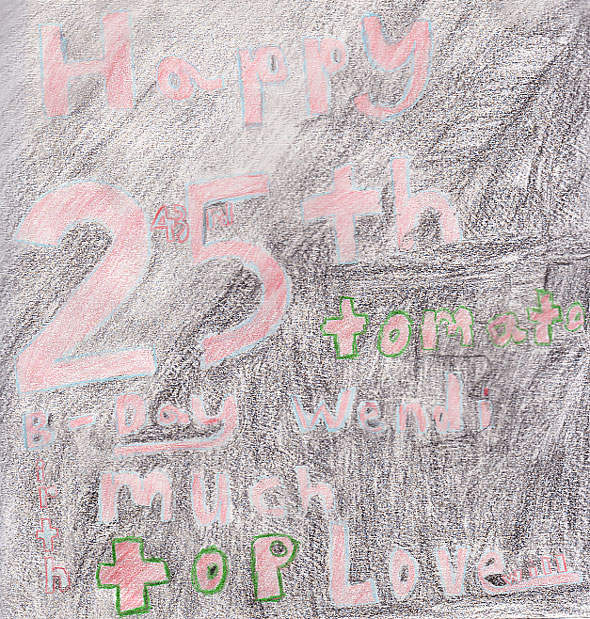 Happy
25th
tomato
B-Day Wendi
much
top Love